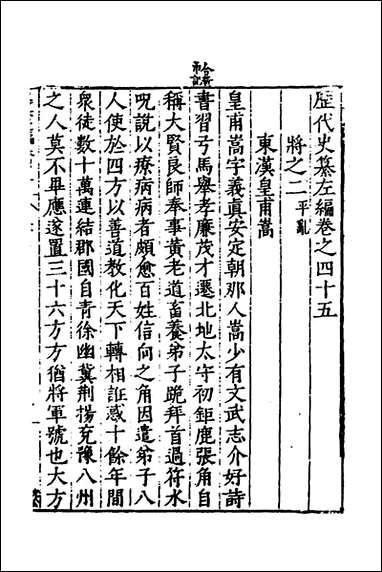 歷代史纂左編卷之四十五
將之二平亂
東漢皇甫嵩
皇甫嵩字義真安定朝那人嵩少有文武志介好詩
書習弓馬舉孝廉茂才遷北地太守初鉅鹿張角自
稱大賢良師奉事黃老道畜養弟子跪拜首過符水
呪說以療病病者頗愈百姓信向之角因遣弟子八
人使於四方以善道教化天下轉相誑惑十餘年間
衆徒數十萬連結郡國自青徐幽冀荆揚兖豫八州
之人莫不畢應遂置三十六方方猶將軍號也大方